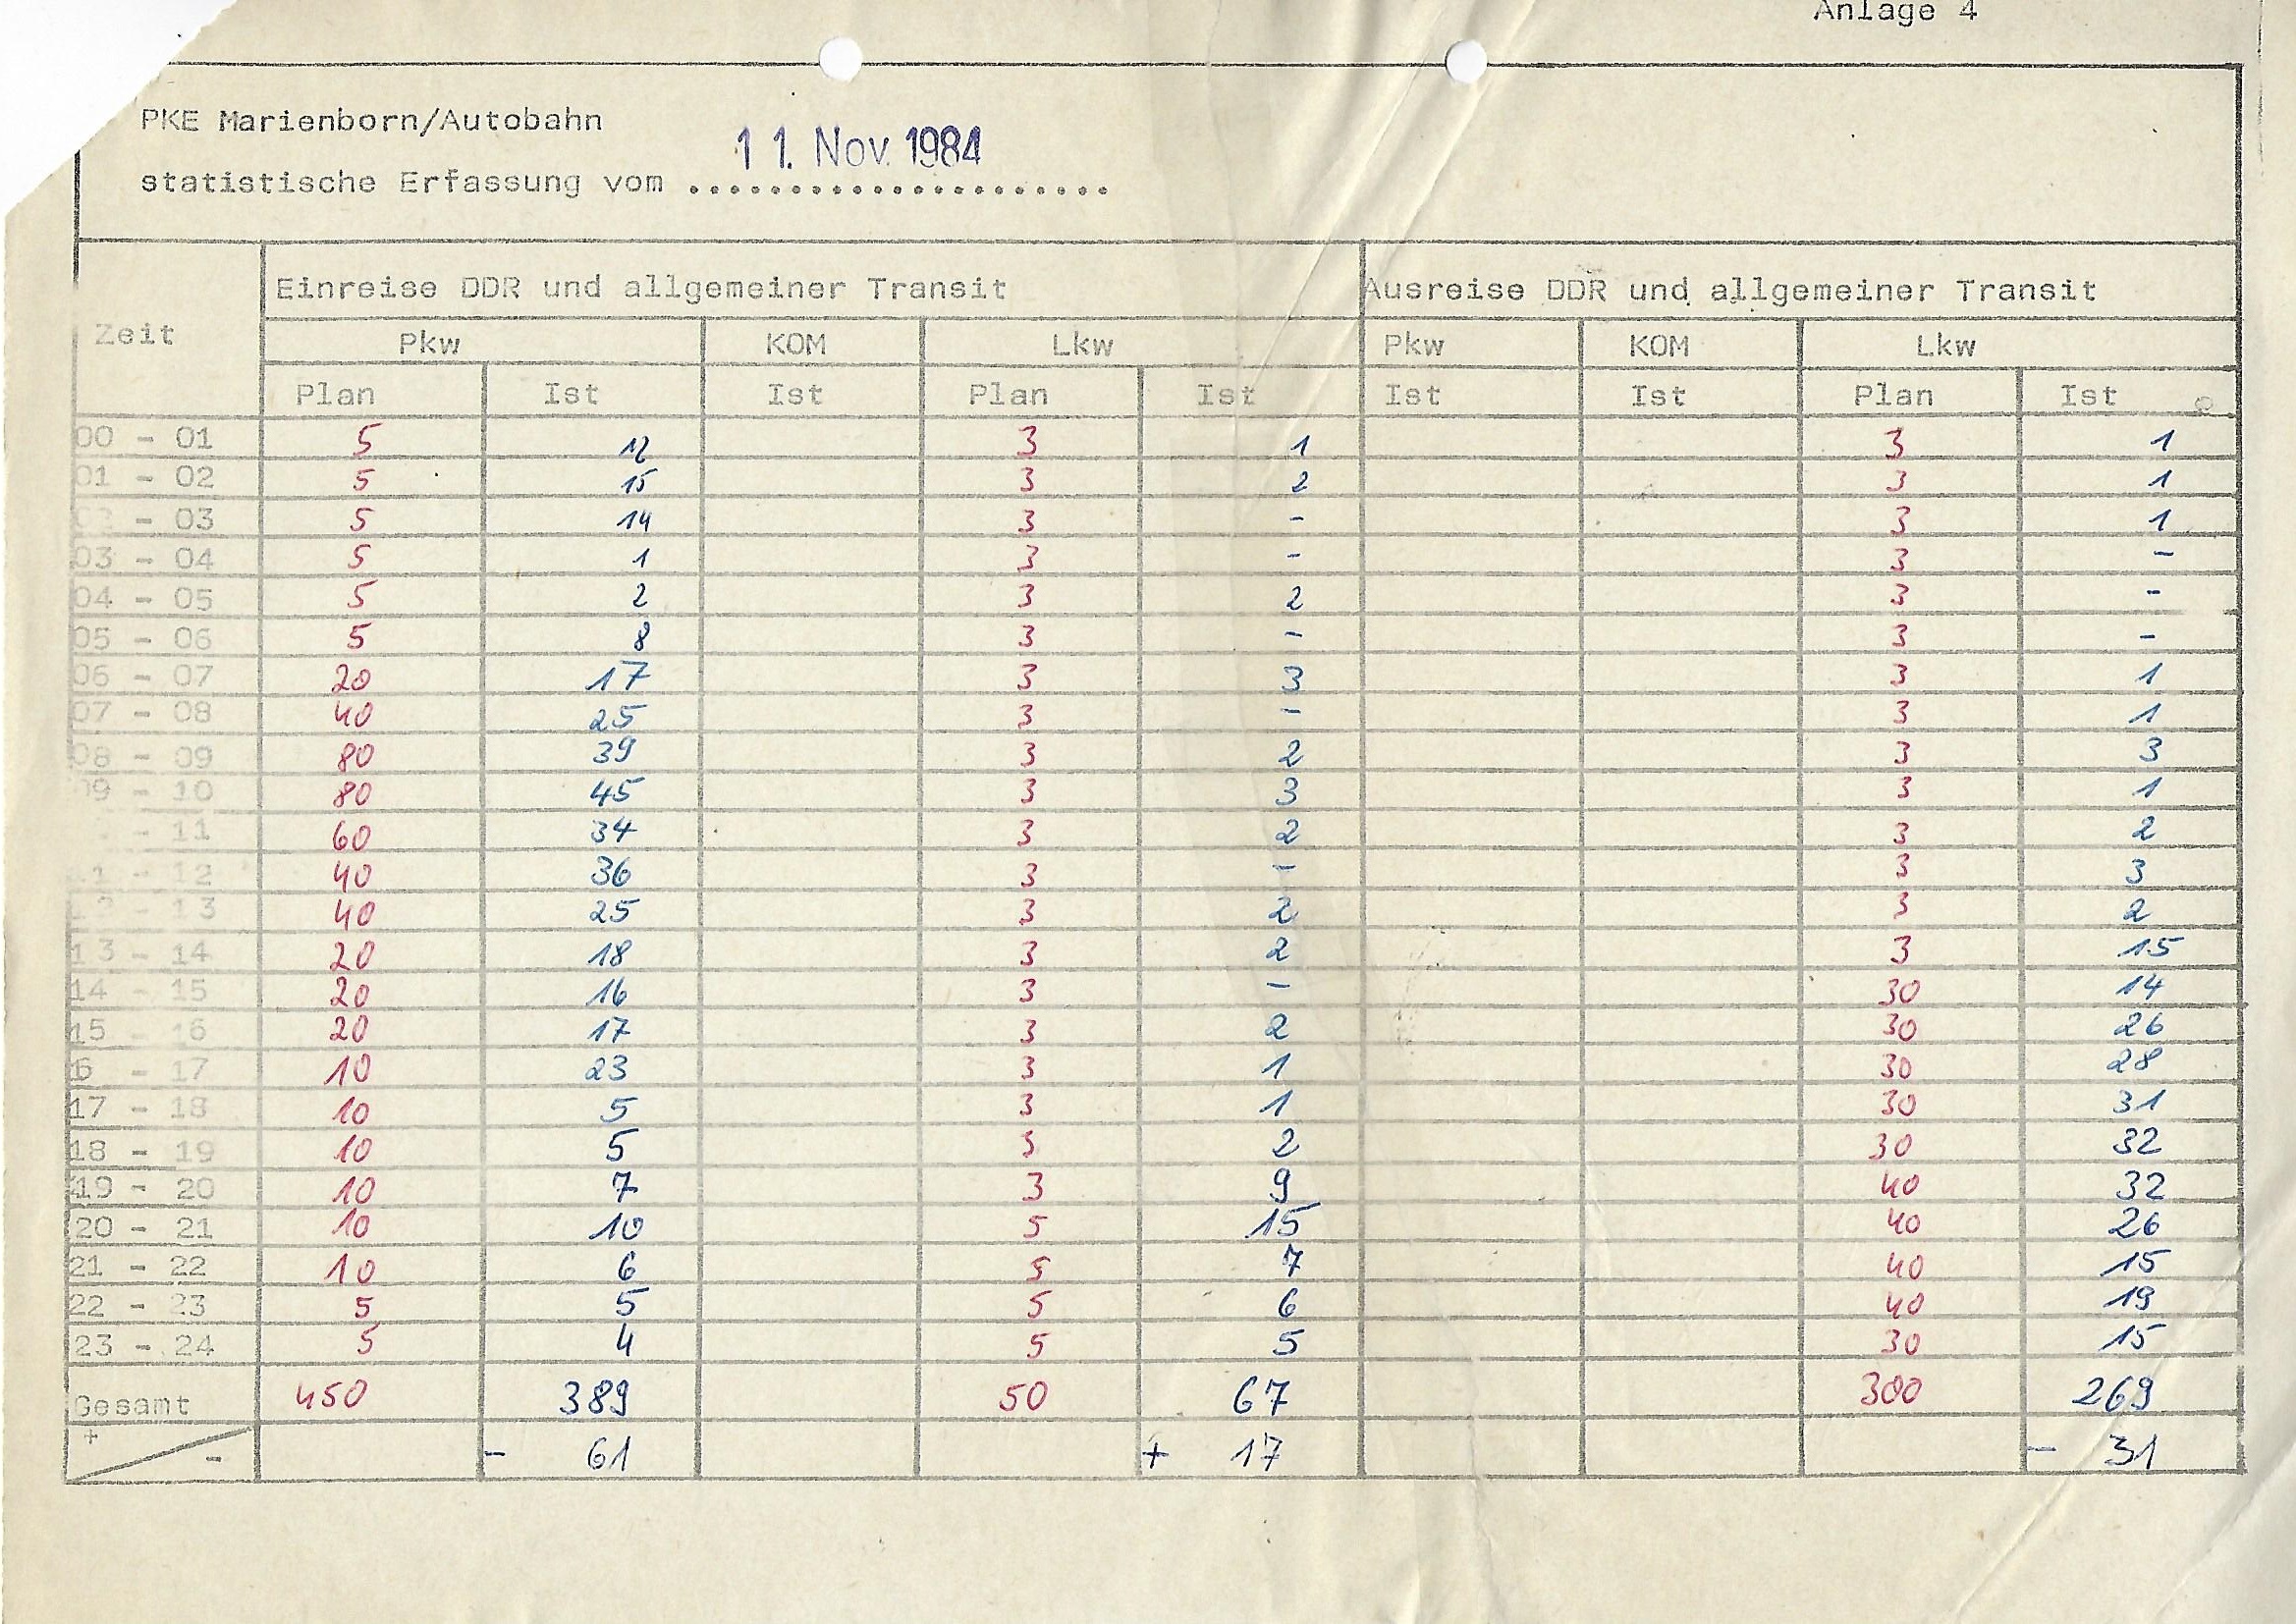 Anlage 4
PKE Marienborn/Autobahn
11. Nov. 1984
statistische Erfassung vom ......................
Einreise DDR und allgemeiner Transit Ausreise DDR und allgemeiner Transit
Zeit
Pkw KOM Lkw Pkw KOM Lkw
Plan Ist Ist Plan Ist Ist Ist Plan Ist
00 - 01 5 12 3 1 3 1
01 - 02 5 15 3 2 3 1
- 03 5 14 3 - 3 1
03 - 04 5 1 3 - 3 -
04 - 05 5 2 3 2 3 -
05 - 06 5 8 3 - 3 -
06 - 07 20 17 3 3 3 1
07 - 08 40 25 3 - 3 1
08 - 09 80 39 3 2 3 3
09 - 10 80 45 3 3 3 1
- 11 60 34 3 2 3 2
1 - 12 40 36 3 - 3 3
2 - 13 40 25 3 2 3 2
13 - 14 20 18 3 2 3 15
14 - 15 20 16 3 - 30 14
15 - 16 20 17 3 2 30 26
6 - 17 10 23 3 1 30 28
17 - 18 10 5 3 1 30 31
18 - 19 10 5 3 2 30 32
19 - 20 10 7 3 9 40 32
20 - 21 10 10 5 15 40 26
21 - 22 10 6 5 7 40 15
22 - 23 5 5 5 6 40 19
23 - 24 5 4 5 5 30 15
Gesamt 450 389 50 67 300 269
+ - - 61 + 17 - 31